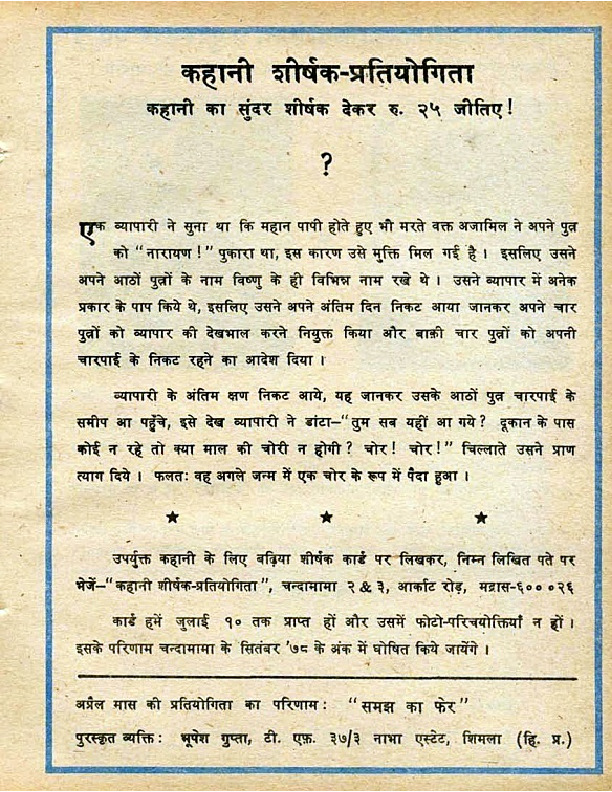 कहानी शीर्षक-प्रतियोगिता
कहानी का सुंदर शीर्षक देकर रु. २५ जीतिए!
?
एक व्यापारी ने सुना था कि महान पापी होते हुए भी मरते वक्त अजामिल ने अपने पुत्र
को “नारायण!” पुकारा था, इस कारण उसे मुक्ति मिल गई है। इसलिए उसने
अपने आठों पुत्रों के नाम विष्णु के ही विभिन्न नाम रखे थे। उसने व्यापार में अनेक
प्रकार के पाप किये थे, इसलिए उसने अपने अंतिम दिन निकट आया जानकर अपने चार
पुत्रों को व्यापार की देखभाल करने नियुक्त किया और बाक़ी चार पुत्रों को अपनी
चारपाई के निकट रहने का आदेश दिया।
व्यापारी के अंतिम क्षण निकट आये, यह जानकर उसके आठों पुत्र चारपाई के
समीप आ पहुँचे, इसे देख व्यापारी ने डांटा—“तुम सब यहीं आ गये? दूकान के पास
कोई न रहे तो क्या माल की चोरी न होगी? चोर! चोर!” चिल्लाते उसने प्राण
त्याग दिये। फलतः वह अगले जन्म में एक चोर के रूप में पैदा हुआ।
★ ★ ★
उपर्युक्त कहानी के लिए बढ़िया शीर्षक कार्ड पर लिखकर, निम्न लिखित पते पर
भेजें—“कहानी शीर्षक-प्रतियोगिता”, चन्दामामा २ & ३, आर्काट रोड़, मद्रास-६०००२६
कार्ड हमें जुलाई १० तक प्राप्त हों और उसमें फोटो-परिचयोक्तियाँ न हों।
इसके परिणाम चन्दामामा के सितंबर ’७८ के अंक में घोषित किये जायेंगे।
अप्रैल मास की प्रतियोगिता का परिणाम: “समझ का फेर”
पुरस्कृत व्यक्ति: भूपेश गुप्ता, टी. एफ़. ३७/३ नाभा एस्टेट, शिमला (हि. प्र.)